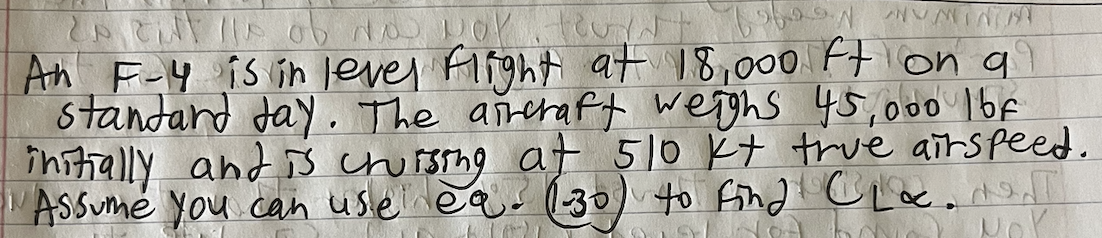 An F-4 is in level flight at 18,000 ft on a
standard day. The aircraft weighs 45,000 lbf
initially and is cruising at 510 kt true airspeed.
Assume you can use eq. (1-30) to find CL∝.